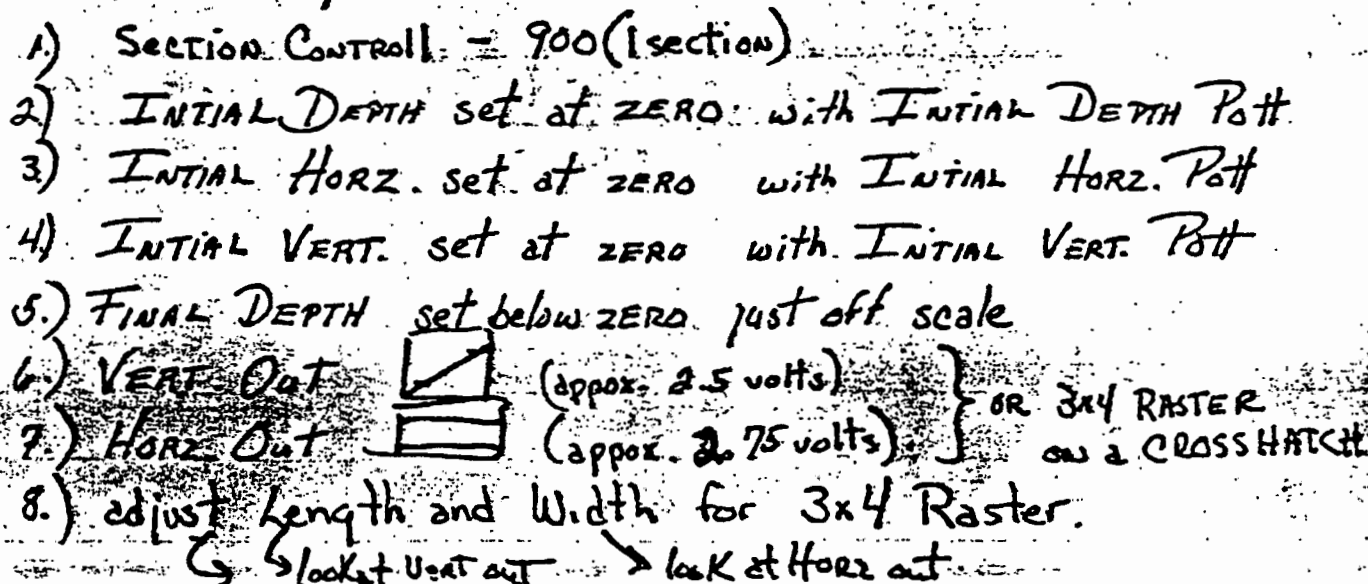 1.) Section Controll - 900 (1 section)
2) INTIAL DEPTH set at ZERO with INTIAL DEPTH Pott
3) INTIAL HORZ. set at ZERO with INTIAL HORZ. Pott
4) INTIAL VERT. set at ZERO with INTIAL VERT. Pott
5.) FINAL DEPTH set below ZERO just off scale
6.) VERT Out (appox. 2.5 volts)
7.) HORZ Out (appox. 2.75 volts)
OR 3x4 RASTER
on a CROSSHATCH
8.) adjust Length and Width for 3x4 Raster.
look at Vert out look at HORZ out